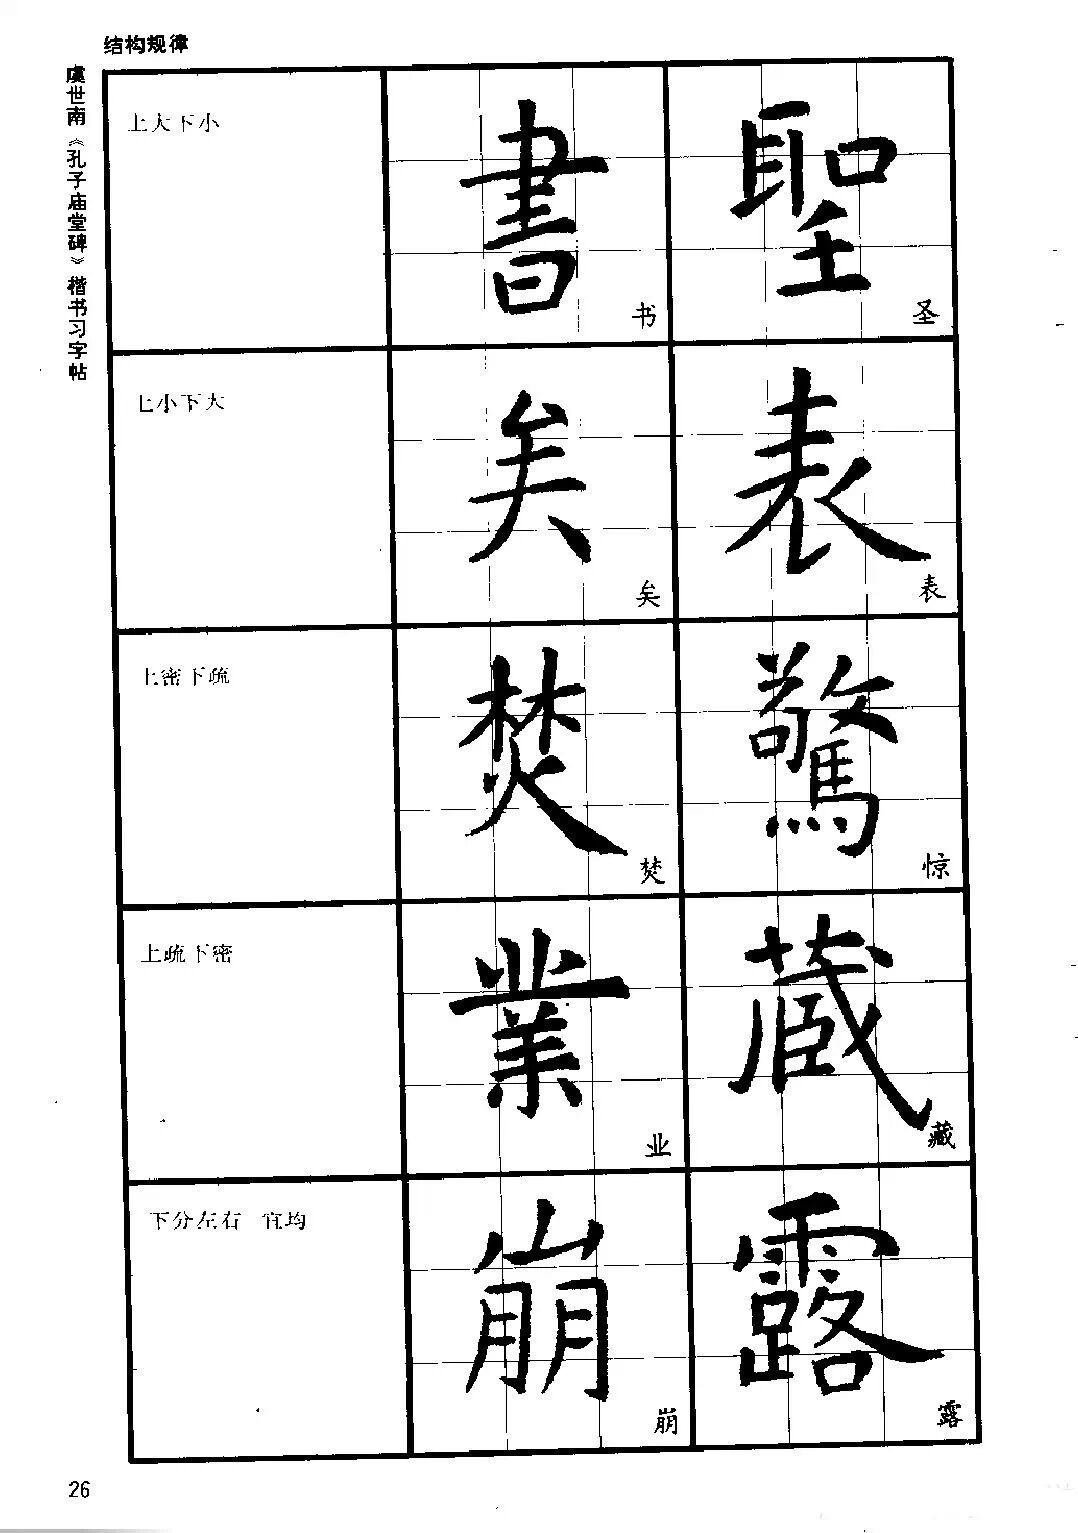 结构规律
虞世南《孔子庙堂碑》楷书习字帖
上大下小
書
书
聖
圣
上小下大
矣
矣
表
表
上密下疏
焚
焚
驚
惊
上疏下密
業
业
蔵
藏
下分左右 宜均
崩
崩
露
露
26